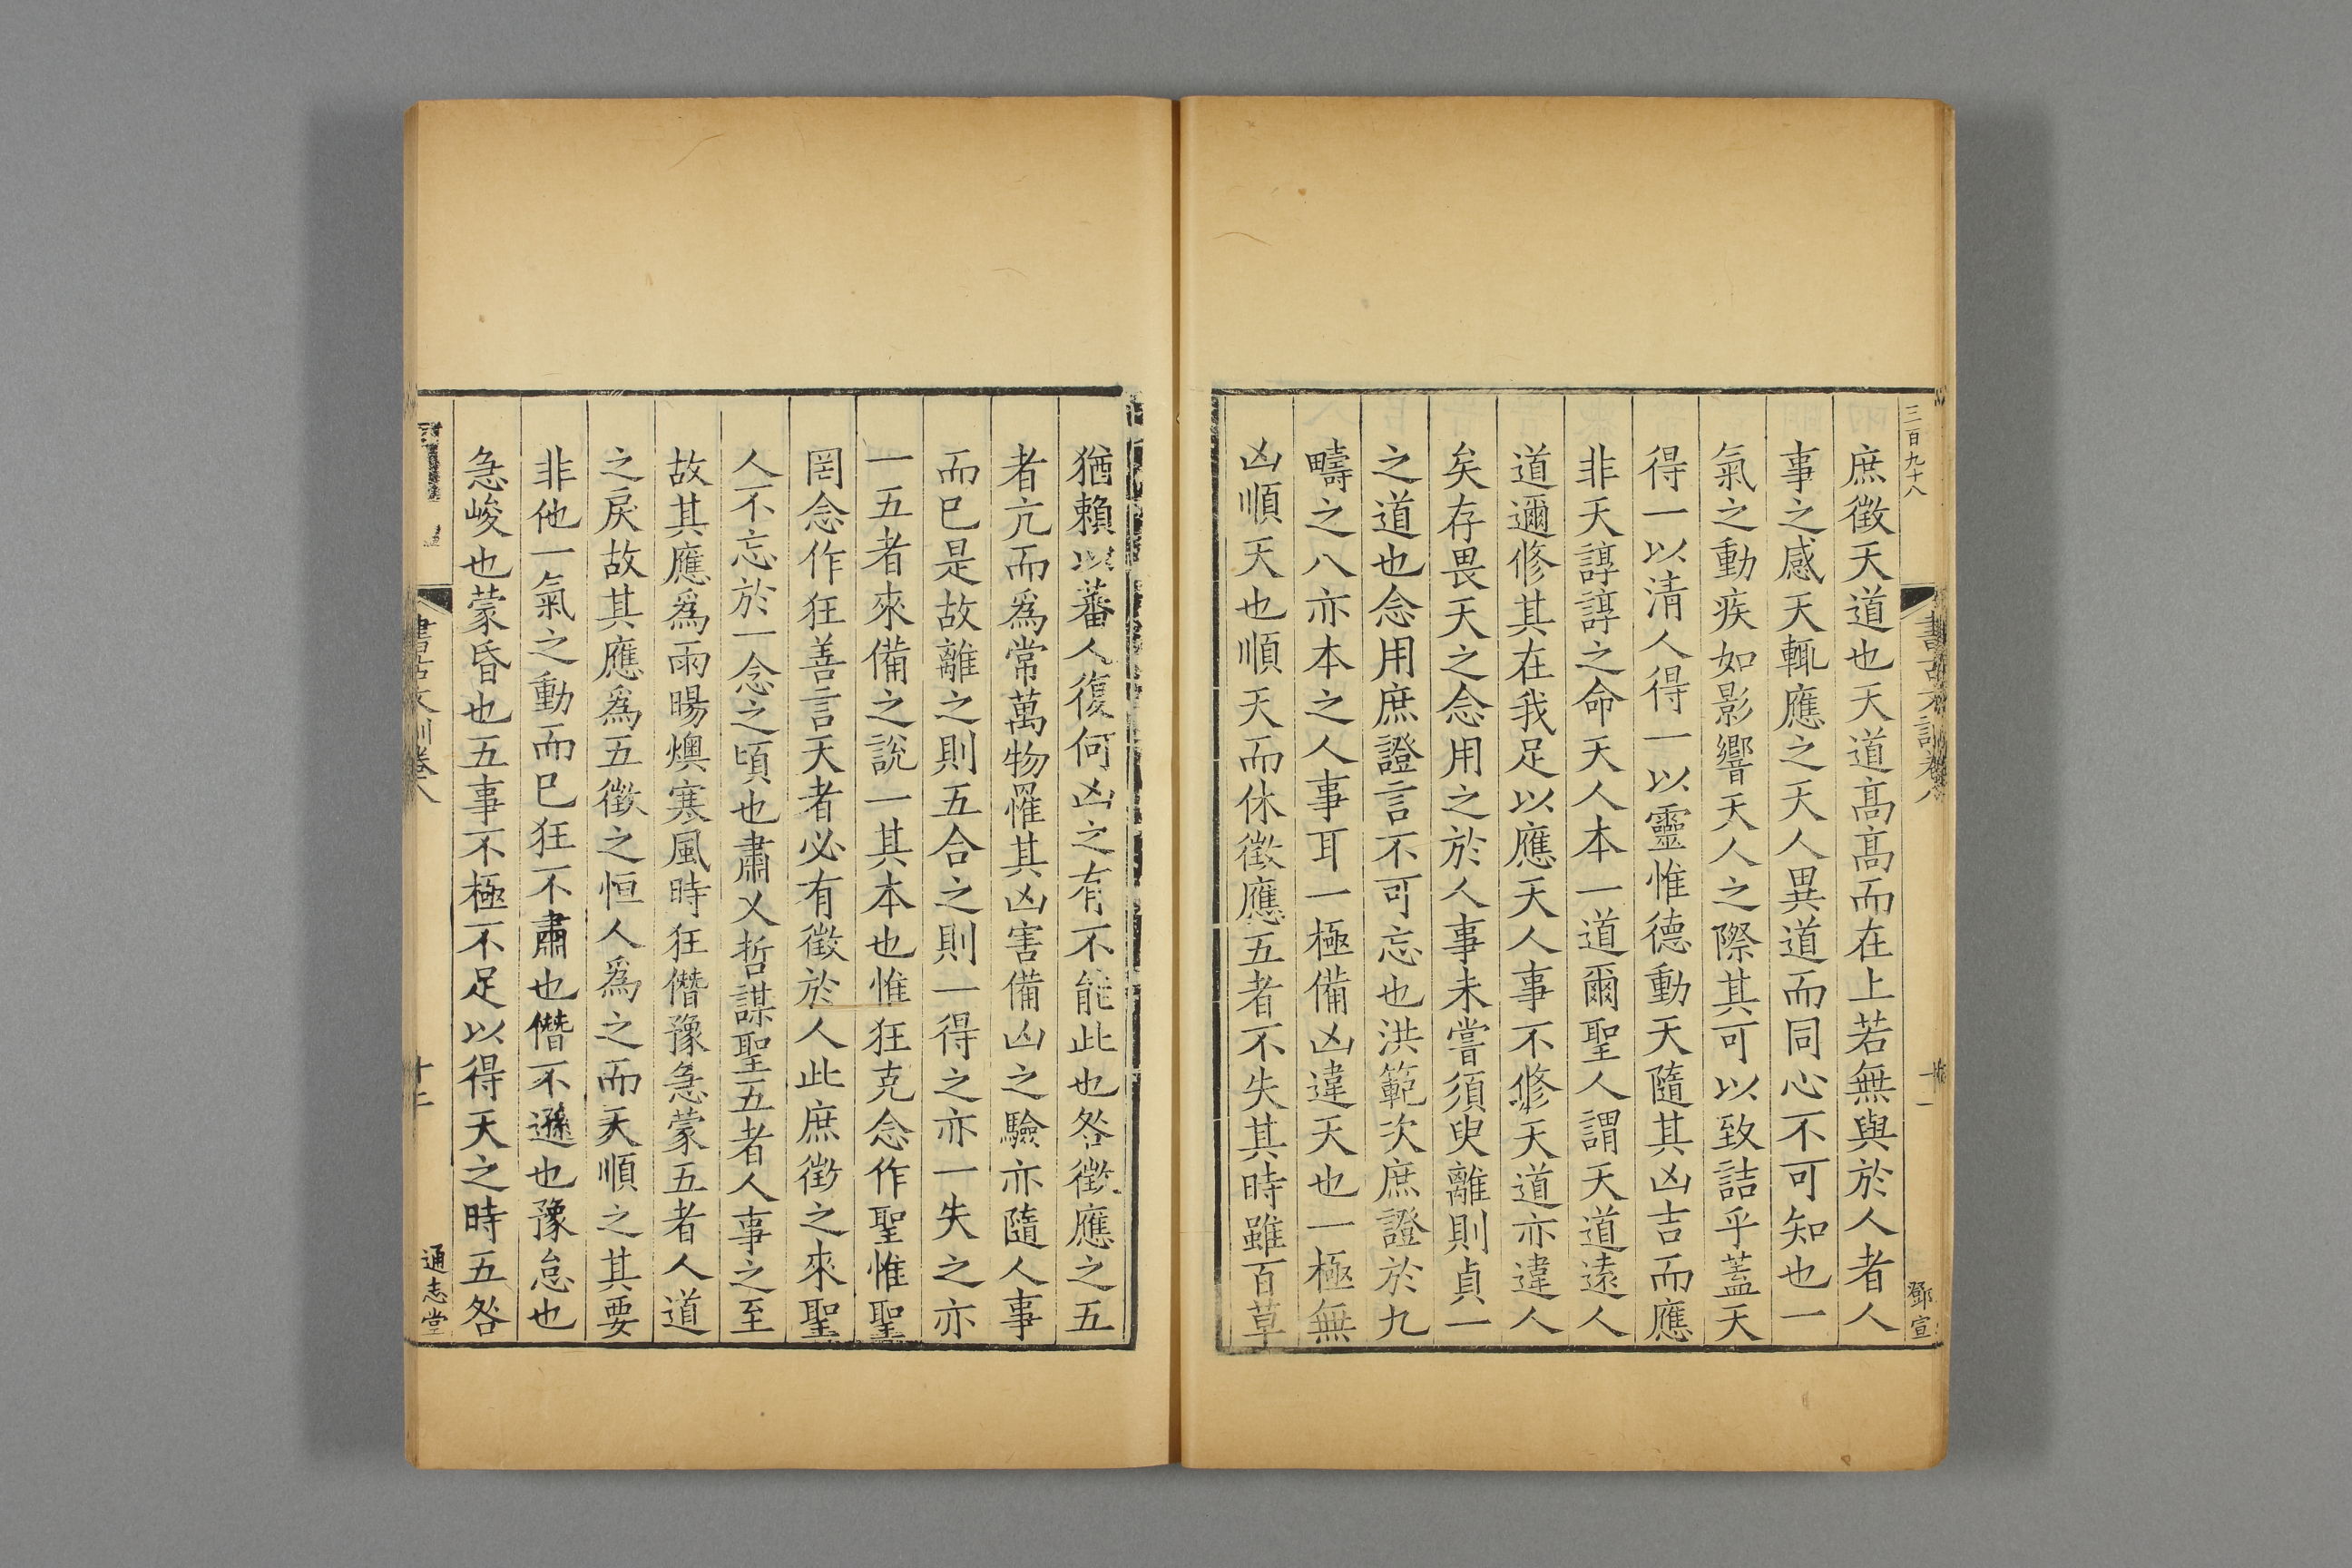 三百九十八
書古文訓卷八
十一
鄧宣
庶徵天道也天道高高而在上若無與於人者人
事之感天輒應之天人異道而同心不可知也一
氣之動疾如影響天人之際其可以致詰乎蓋天
得一以清人得一以靈惟德動天隨其凶吉而應
非天諄諄之命天人本一道爾聖人謂天道遠人
道邇修其在我足以應天人事不修天道亦違人
矣存畏天之念用之於人事未嘗須臾離則貞一
之道也念用庶證言不可忘也洪範次庶證於九
疇之八亦本之人事耳一極備凶違天也一極無
凶順天也順天而休徵應五者不失其時雖百草
猶賴以蕃人復何凶之有不能此也咎徵應之五
者亢而爲常萬物罹其凶害備凶之驗亦隨人事
而已是故離之則五合之則一得之亦一失之亦
一五者來備之說一其本也惟狂克念作聖惟聖
罔念作狂善言天者必有徵於人此庶徵之來聖
人不忘於一念之頃也肅乂哲謀聖五者人事之至
故其應爲雨暘燠寒風時狂僭豫急蒙五者人道
之戾故其應爲五徵之恒人爲之而天順之其要
非他一氣之動而已狂不肅也僭不遜也豫怠也
急峻也蒙昏也五事不極不足以得天之時五咎
書古文訓卷八
十二
通志堂